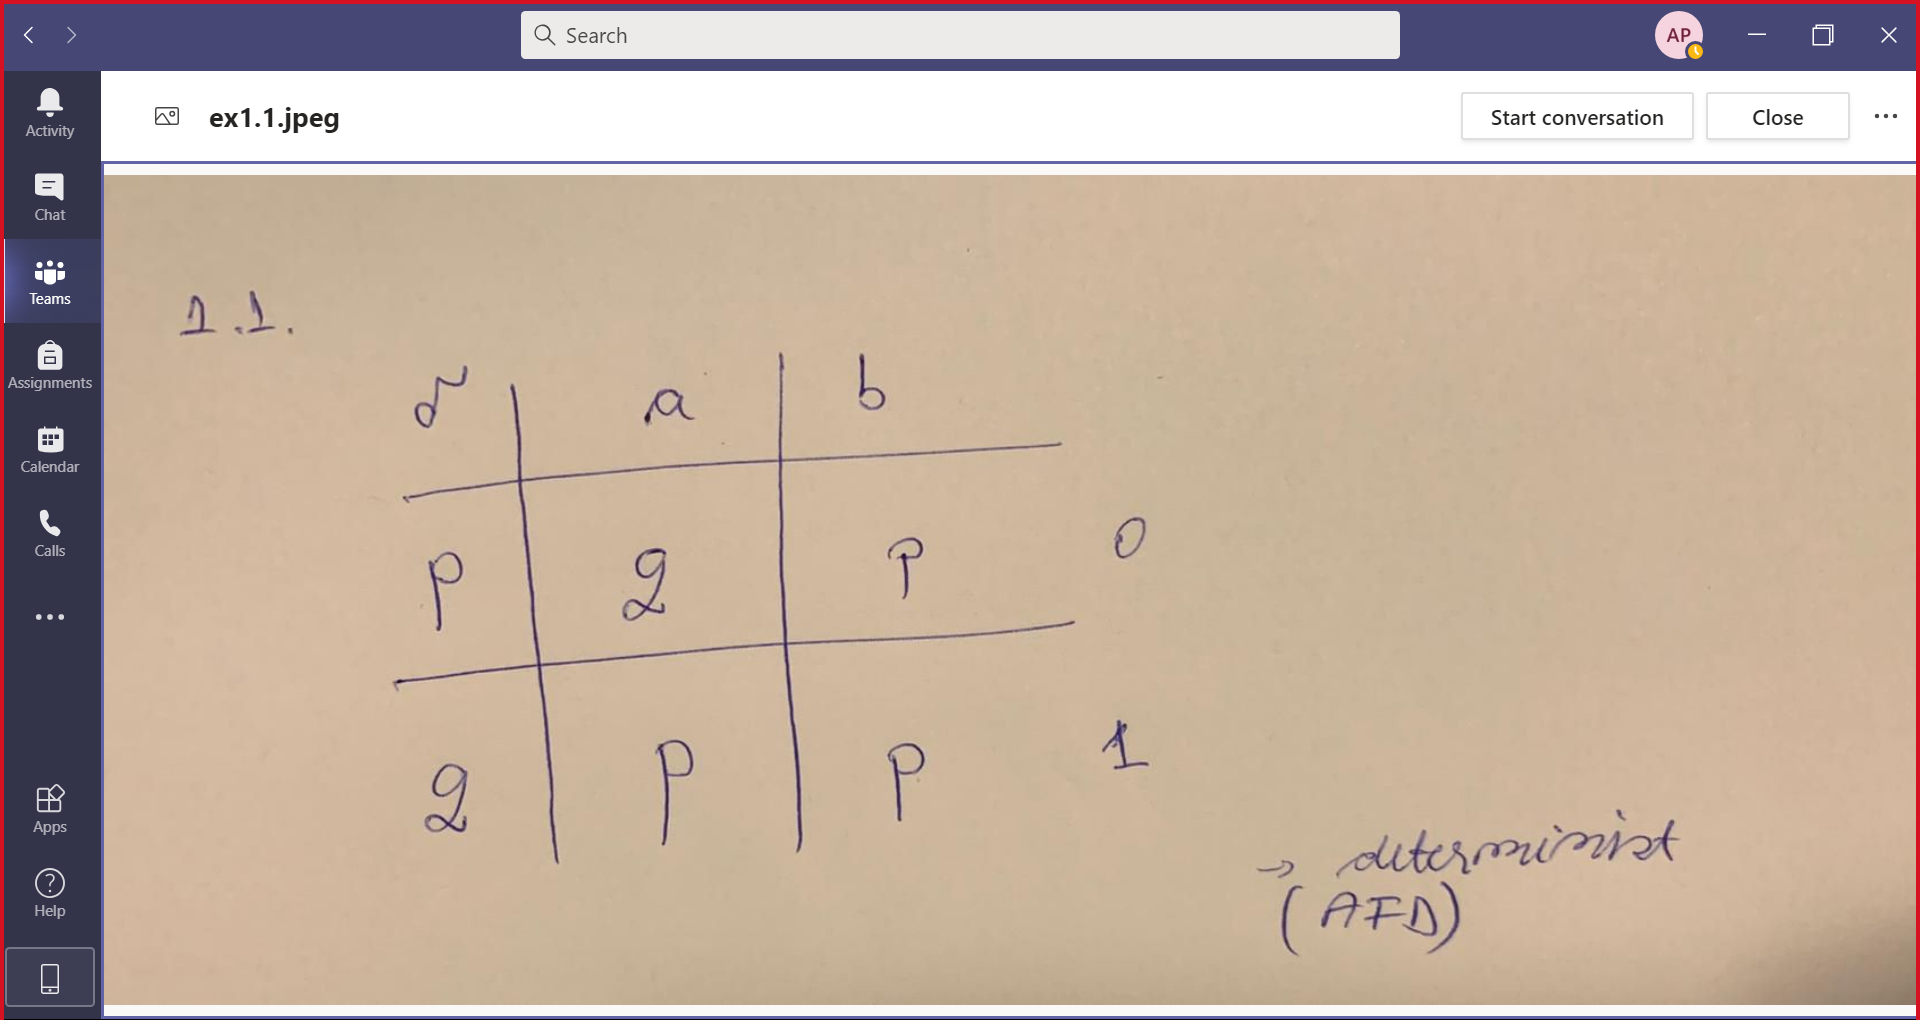 Search
AP
Activity
Chat
Teams
Assignments
Calendar
Calls
Apps
Help
ex1.1.jpeg
Start conversation
Close
1.1.
δ a b
p q p 0
q p p 1
→ determinist
(AFD)